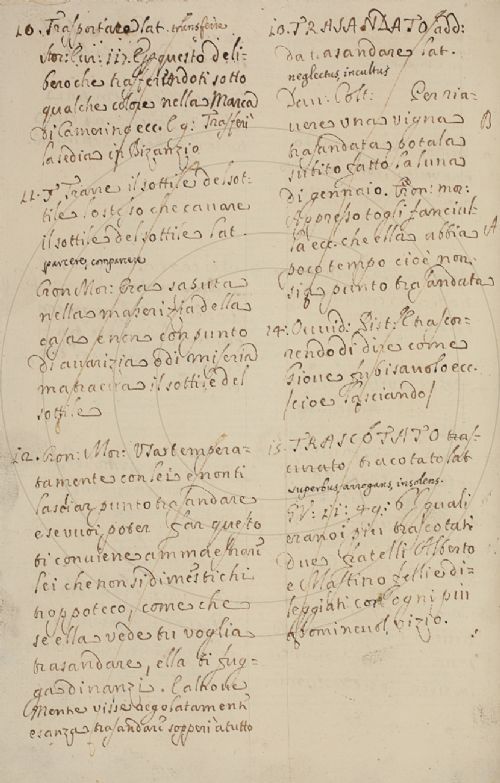 10. Trasportato lat. transferre
Stor: Eur: 117. E questo deli-
berò che trasferendoti sotto
qualche colore nella Marca
di Camerino ecc. Trasferì
la sedia in Bizanzio
11. Trarre il sottile del sot-
tile lo stesso che cavare
il sottile del sottile lat.
parcere, comparcere
Cron Mor: Fra saputa
nella maserizia della
casa e non con punto
di avarizia o di miseria
ma traeva il sottile del
sottile
12. Cron: Mor: Usa tempera-
tamente con lei e non ti
lasciar punto trasandare
e se vuoi poter far questo
ti conviene ammaestrare
lei che non si dimestichi
troppo teco, come che
se ella vede tu voglia
trasandare, ella ti fug-
ga dinanzi. E altrove
Mente visse regolatamente
e sanza trasandare sopperì a tutto
13. TRASANDATO add:
da trasandare lat.
neglectus, incultus
Dav: Colt: Per ria-
vere una vigna B
trasandata potala
subito fatto la luna
di gennaio. Cron: mo:
Appresso togli fanciul-
la ecc. che ella abbia A
poco tempo cioè non
sia punto trasandata
14. Ovvid: Pist: E trascor-
rendo di dire come
Giove tuo bisavolo ecc.
/cioè lasciando/
15. TRASCOTATO tras-
curato, tracotato lat
superbus, arrogans, insolens.
GV: 11: 49: 6 I quali
erano più trascotati
due fratelli Alberto
e Mastino felli e di-
leggiati con ogni più
abominevol vizio.